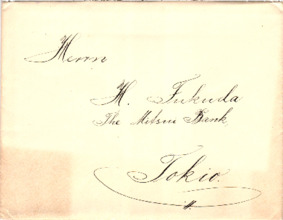 Herrn
H. Fukuda
The Mitsui Bank
Tokio